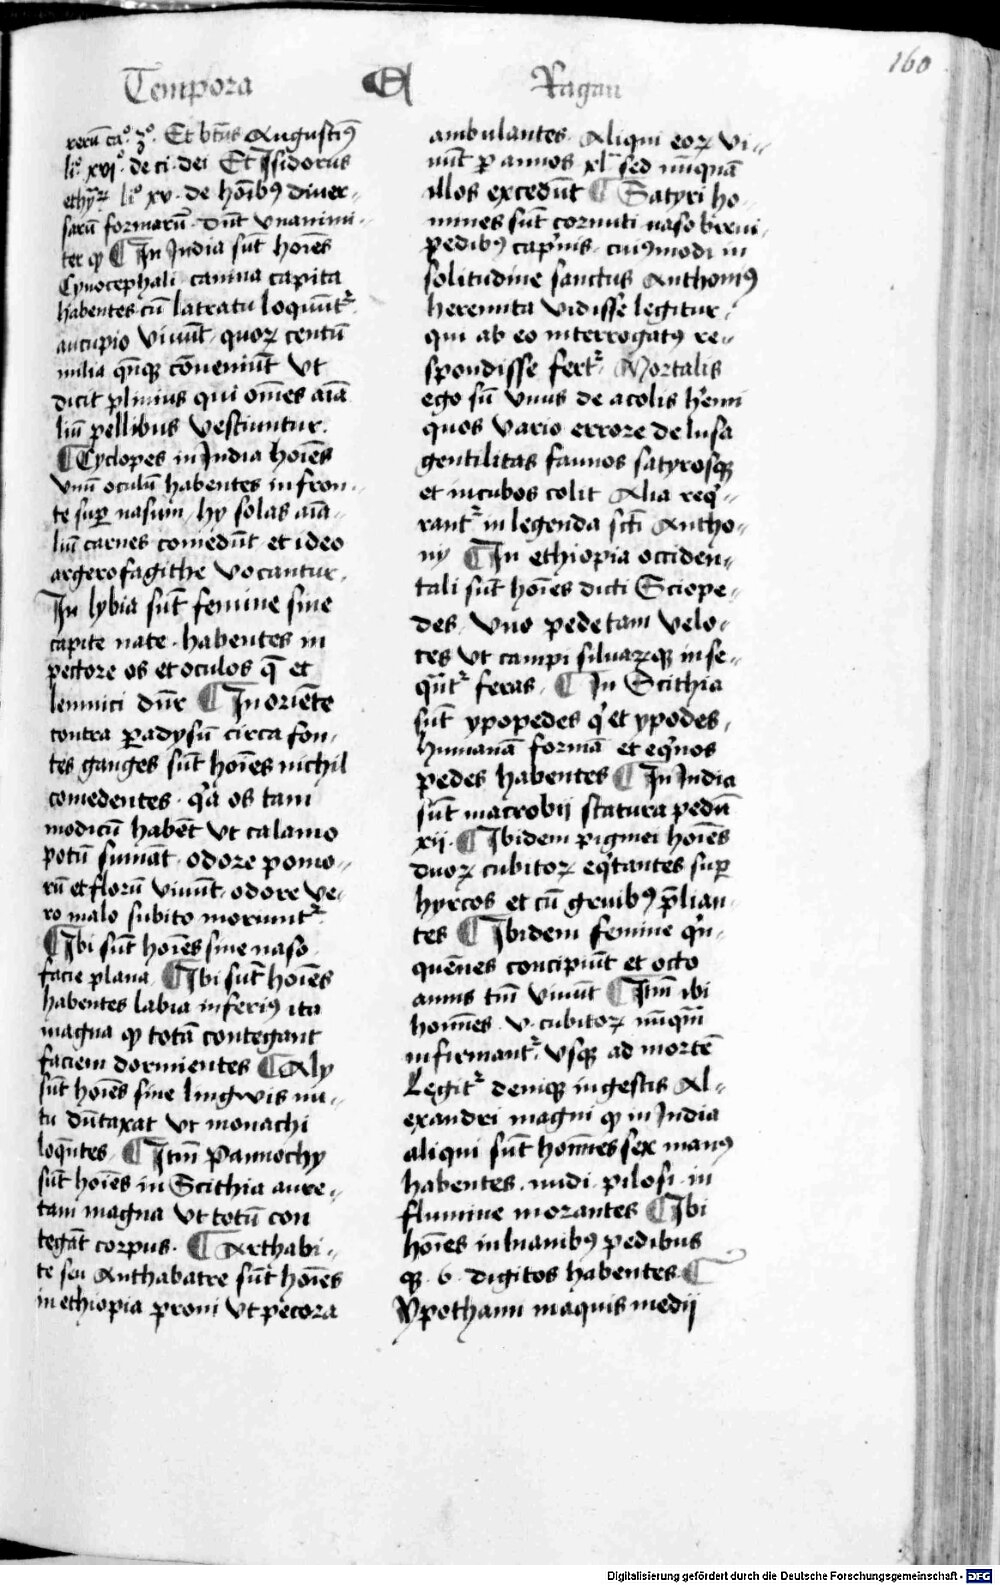 Tempora
Ragau
160
rerū ca.° 3.° Et btūs Augustinꝰ
li.° xvi.° de ci. dei Et Isidorus
ethyꝝ li.° xv. de hoībꝰ diuer-
sarū formarū dn̄t vnanimi-
ter ꝙ ¶ In India sūt hoīes
Cynocephali canina capita
habentes cū latratu loqūūt̉
aucupio viuūt quoꝝ centū
milia qn̄qꝫ cōueniūt vt
dicit plinius qui om̄es aīa
liū pellibus vestiuntur.
¶ Cyclopes in India hoīes
vnū oculum habentes in fron-
te suꝑ nasum, hy solas aīa-
liū carnes comedūt et ideo
argerofagithe vocantur.
In lybia sūt femine sine
capite nate. habentes in
pectore os et oculos q̄ et
lemnici dn̄r ¶ In oriēte
contra ꝑadysū circa fon-
tes ganges sūt hoīes nichil
comedentes. q̉a os tam
modicū habēt vt calamo
potū sumāt. odore pomo-
rū et florū viuūt. odore ve-
ro malo subito moriunt̉
¶ Ibi sūt hoīes sine naso
facie plana ¶ Ibi sūt hoīes
habentes labia inferiꝰ ita
magna ꝙ totā contegant
faciem dormientes ¶ Aly
sūt hoīes sine lingwis nu-
tu dūtaxat vt monachi
loqn̄tes ¶ Itm̄ Pannochy
sūt hoīes in Scithia aure-
tam magna vt totū con
tegāt corpus. ¶ Arthabi-
te seu Anthabatre sūt hoīes
in ethiopia proni vt pecora
ambulantes. Aliqui eoꝝ vi-
uūt ꝑ annos xl sed nūquā
illos excedūt ¶ Satyri ho-
mines sūt cornuti naso breui
pedibꝰ cap̉nis. cuiꝰmodi in
solitudine sanctus Anthoniꝰ
heremita vidisse legitur,
qui ab eo interrogatꝰ re-
spondisse fert̉. Mortalis
ego sū vnus de acolis hemi
quos vario errore delusa
gentilitas faunos satyrosqꝫ
et incubos colit Alia req̉-
rant̉ in legenda scti Antho-
ny ¶ In ethiopia occiden-
tali sūt hoīes dicti Sciope-
des, vno pede tam velo-
ces vt campi siluaꝝqꝫ inse-
qn̄t̉ feras, ¶ In Scithia
sūt ypopedes q̉ et ypodes,
humanā formā et eq̉nos
pedes habentes ¶ In India
sūt macrobij statura pedū
xij. ¶ Ibidem pigmei hoīes
duoꝝ cubitoꝝ eq̉tantes suꝑ
hyrcos et cū gruibꝰ p̄lian-
tes ¶ Ibidem femine q̉n-
quēnes concipiūt et octo
annis tm̄ viuūt ¶ Itm̄ ibi
homīes. v. cubitoꝝ nūqm̄
infirmant̉, vsqꝫ ad mortē
Legit̉ deniqꝫ in gestis Al-
exandri magni ꝙ in India
aliqui sūt homīes sex manꝰ
habentes. nudi. pilosi. in
flumine morantes ¶ Ibi
hoīes in manibꝰ pedibus
qꝫ. 6. digitos habentes ¶
Ypothami in aquis medij
Digitalisierung gefördert durch die Deutsche Forschungsgemeinschaft - DFG